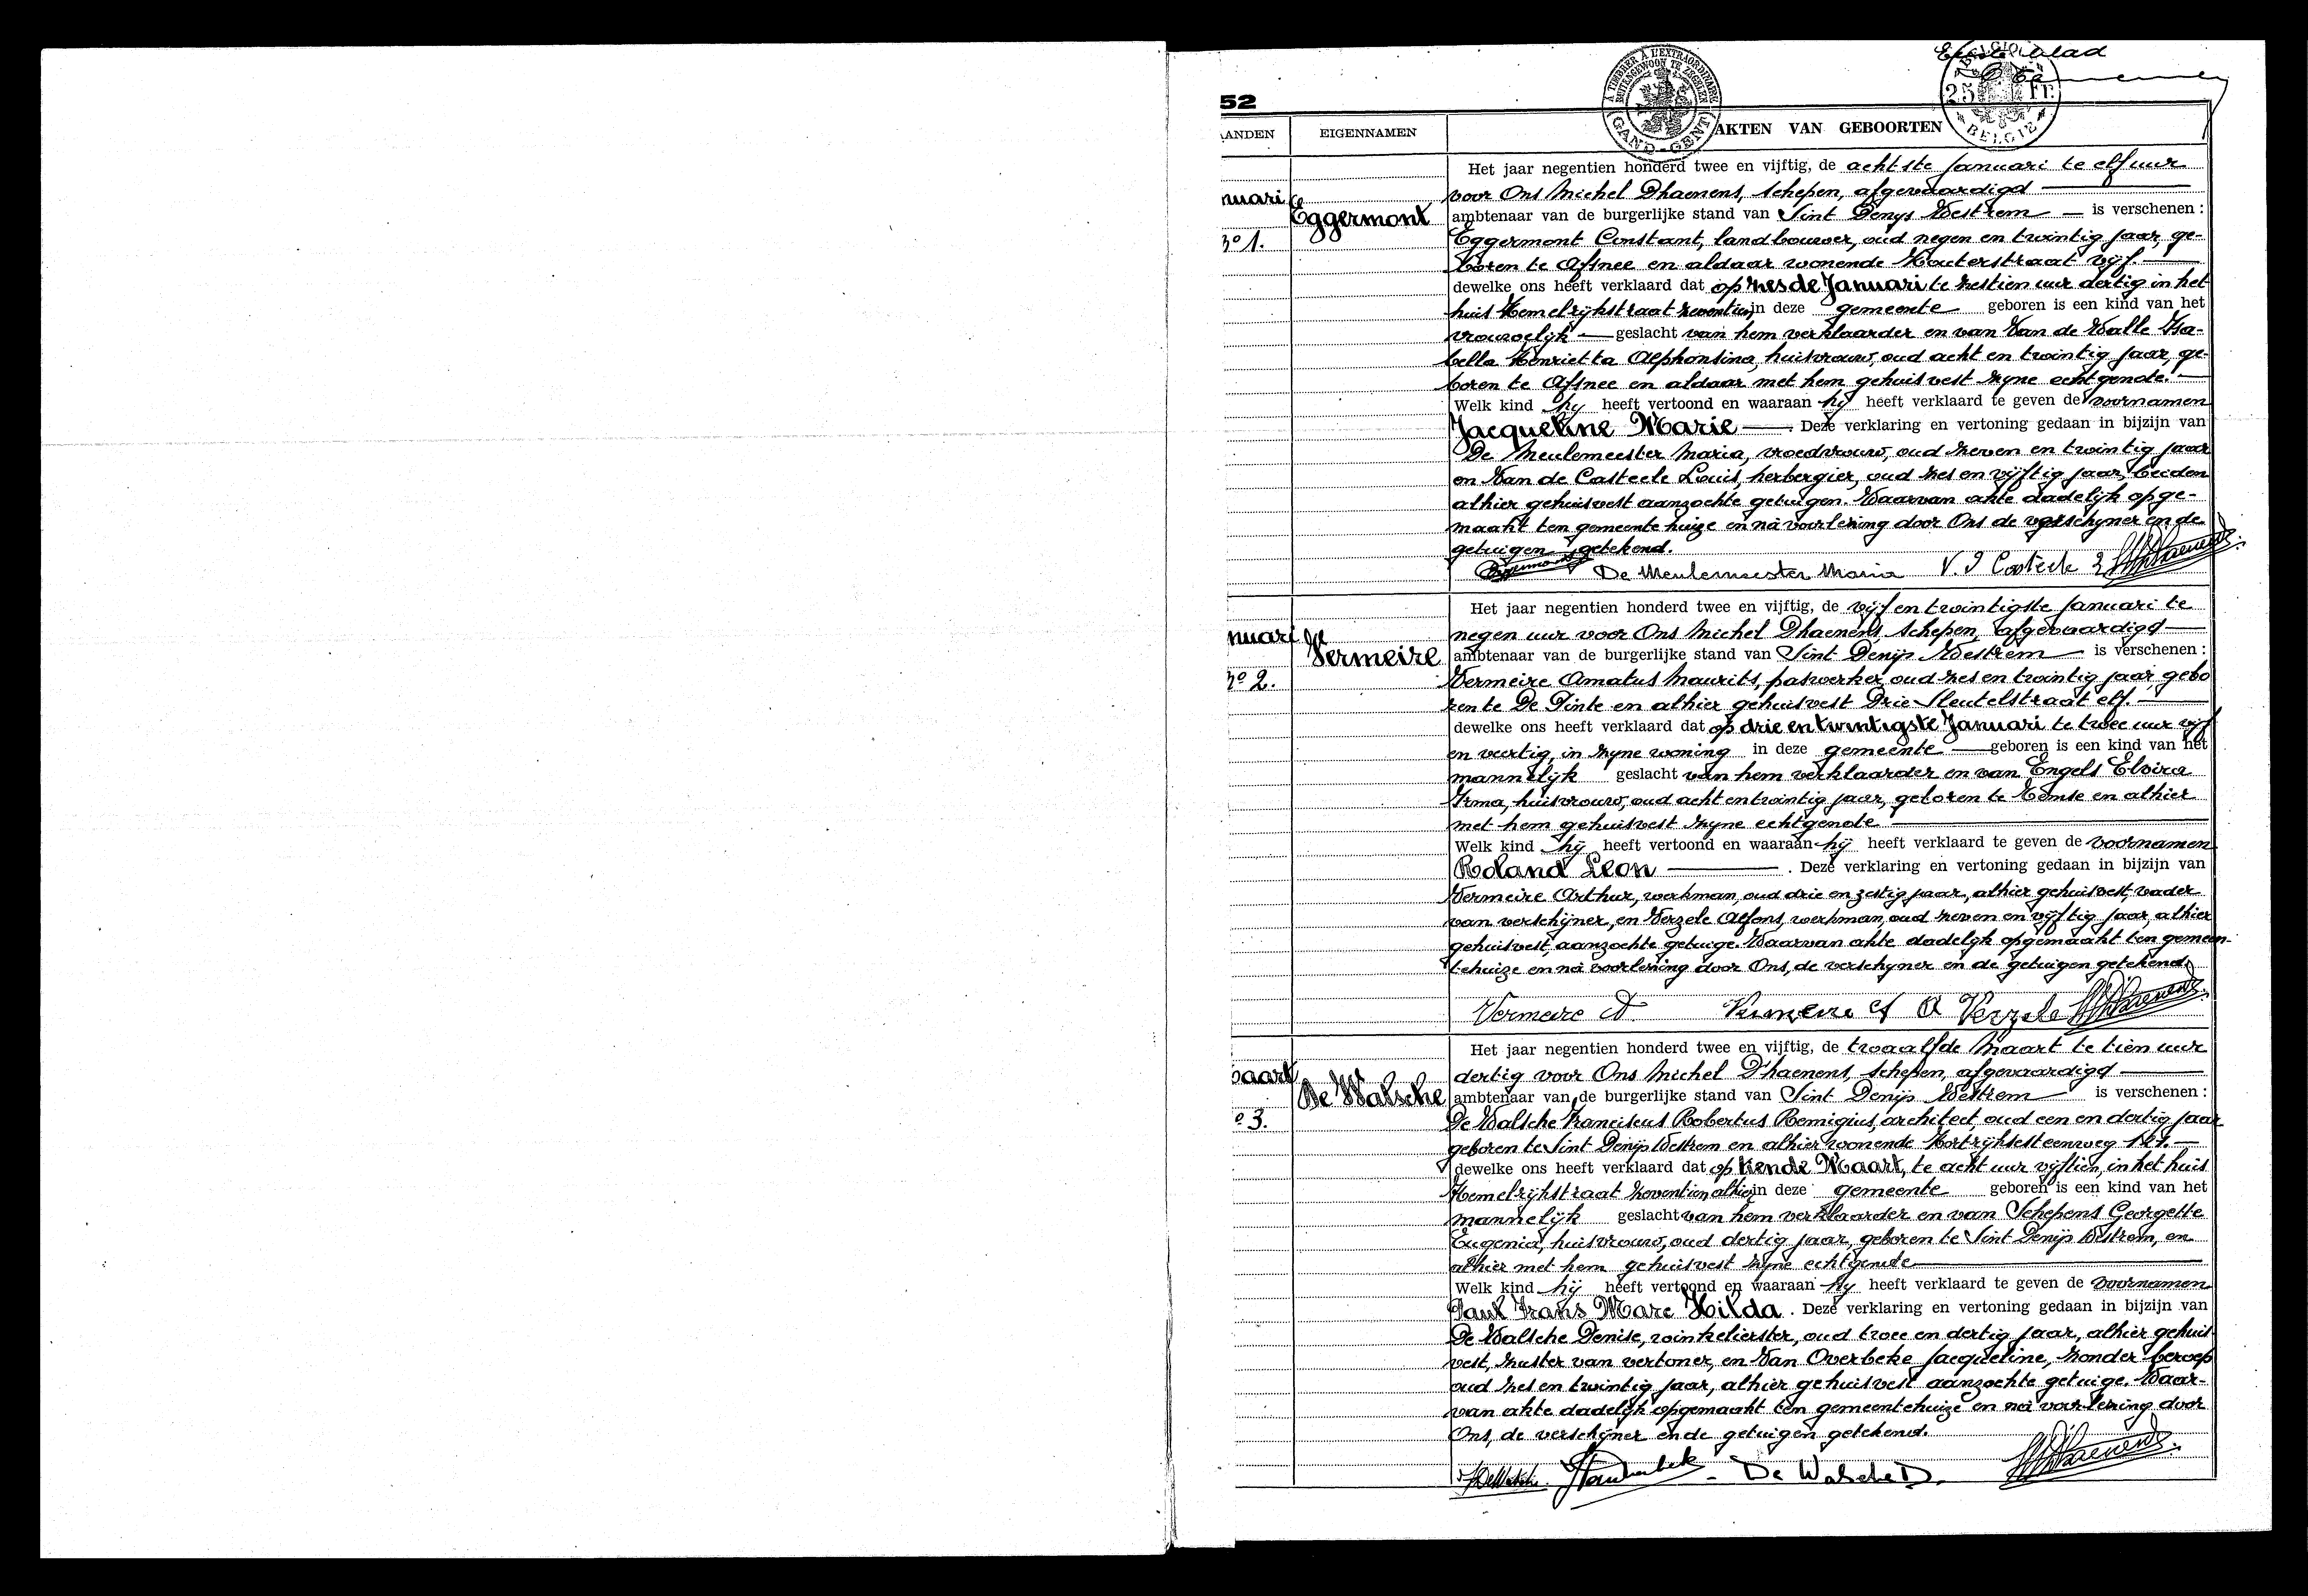 Eerste blad
52
A TIMBRER A L'EXTRAORDINAIRE
BUITENGEWOON TE ZEGELEN
GAND - GENT
25 Fr.
BELGIE
ANDEN
EIGENNAMEN
AKTEN VAN GEBOORTEN
nuari
No 1.
Eggermont
Het jaar negentien honderd twee en vijftig, de achtste Januari te elf uur
voor Ons Michel Dhaenens, schepen, afgevaardigd
ambtenaar van de burgerlijke stand van Sint Denys Westrem is verschenen :
Eggermont Constant, landbouwer, oud negen en twintig jaar, ge-
boren te Afsnee en aldaar wonende Kouterstraat vijf.
dewelke ons heeft verklaard dat op zesde Januari te zestien uur dertig in het
huis Hemelrijkstraat zeventien in deze gemeente geboren is een kind van het
vrouwelijk geslacht van hem verklaarder en van Van de Walle Isa-
bella Henrietta Alphonsina, huisvrouw, oud acht en twintig jaar, ge-
boren te Afsnee en aldaar met hem gehuisvest zyne echtgenote.
Welk kind hy heeft vertoond en waaraan hy heeft verklaard te geven de voornamen
Jacqueline Marie . Deze verklaring en vertoning gedaan in bijzijn van
De Meulemeester Maria, vroedvrouw, oud zeven en twintig jaar
en Van de Casteele Louis, herbergier, oud zes en vijftig jaar, beiden
alhier gehuisvest aanzochte getuigen. Waarvan akte dadelijk opge-
maakt ten gemeentehuize en nà voorlezing door Ons de verschyner en de
getuigen getekend.
Eggermont De Meulemeester Maria V. D Casteele L Dhaenens
nuari
No 2.
Vermeire
Het jaar negentien honderd twee en vijftig, de vijf en twintigste Januari te
negen uur voor Ons Michel Dhaenens, schepen, afgevaardigd
ambtenaar van de burgerlijke stand van Sint Denijs Westrem is verschenen :
Vermeire Amatus Maurits, paswerker, oud zes en twintig jaar, gebo
ren te De Pinte en alhier gehuisvest Drie Sleutelstraat elf.
dewelke ons heeft verklaard dat op drie en twintigste Januari te twee uur vijf
en veertig, in zyne woning in deze gemeente geboren is een kind van het
mannelijk geslacht van hem verklaarder en van Engels Elvira
Irma, huisvrouw, oud acht en twintig jaar, geboren te Temse en alhier
met hem gehuisvest zyne echtgenote
Welk kind hij heeft vertoond en waaraan hij heeft verklaard te geven de voornamen
Roland Leon . Deze verklaring en vertoning gedaan in bijzijn van
Vermeire Arthur, werkman, oud drie en zestig jaar, alhier gehuisvest, vader
van verschijner, en Verzele Alfons, werkman, oud zeven en vijftig jaar, alhier
gehuisvest, aanzochte getuige. Waarvan akte dadelijk opgemaakt ten gemeen-
tehuize en nà voorlezing door Ons, de verschyner en de getuigen getekend.
Vermeire A Vermeire A A Verzele Dhaenens
Maart
o 3.
De Walsche
Het jaar negentien honderd twee en vijftig, de twaalfde Maart te tien uur
dertig voor Ons Michel D'haenens, schepen, afgevaardigd
ambtenaar van de burgerlijke stand van Sint Denijs Westrem is verschenen :
De Walsche Franciscus Robertus Remigius, architect, oud een en dertig jaar
geboren te Sint Denijs Westrem en alhier wonende Kortrijksesteenweg
dewelke ons heeft verklaard dat op tiende Maart, te acht uur vijftien, in het huis
Hemelrijkstraat zeventien alhier in deze gemeente geboren is een kind van het
mannelijk geslacht van hem verklaarder en van Schepens Georgette
Eugenia, huisvrouw, oud dertig jaar, geboren te Sint Denijs Westrem, en
alhier met hem gehuisvest zyne echtgenote
Welk kind hij heeft vertoond en waaraan hy heeft verklaard te geven de voornamen
Paul Frans Marc Hilda . Deze verklaring en vertoning gedaan in bijzijn van
De Walsche Denise, winkelierster, oud twee en dertig jaar, alhier gehuis
vest, zuster van vertoner, en Van Overbeke Jacqueline, zonder beroep
oud zes en twintig jaar, alhier gehuisvest aanzochte getuige. Waar-
van akte dadelijk opgemaakt ten gemeentehuize en nà voorlezing door
Ons, de verschijner en de getuigen getekend.
De Walsche D. Dhaenens